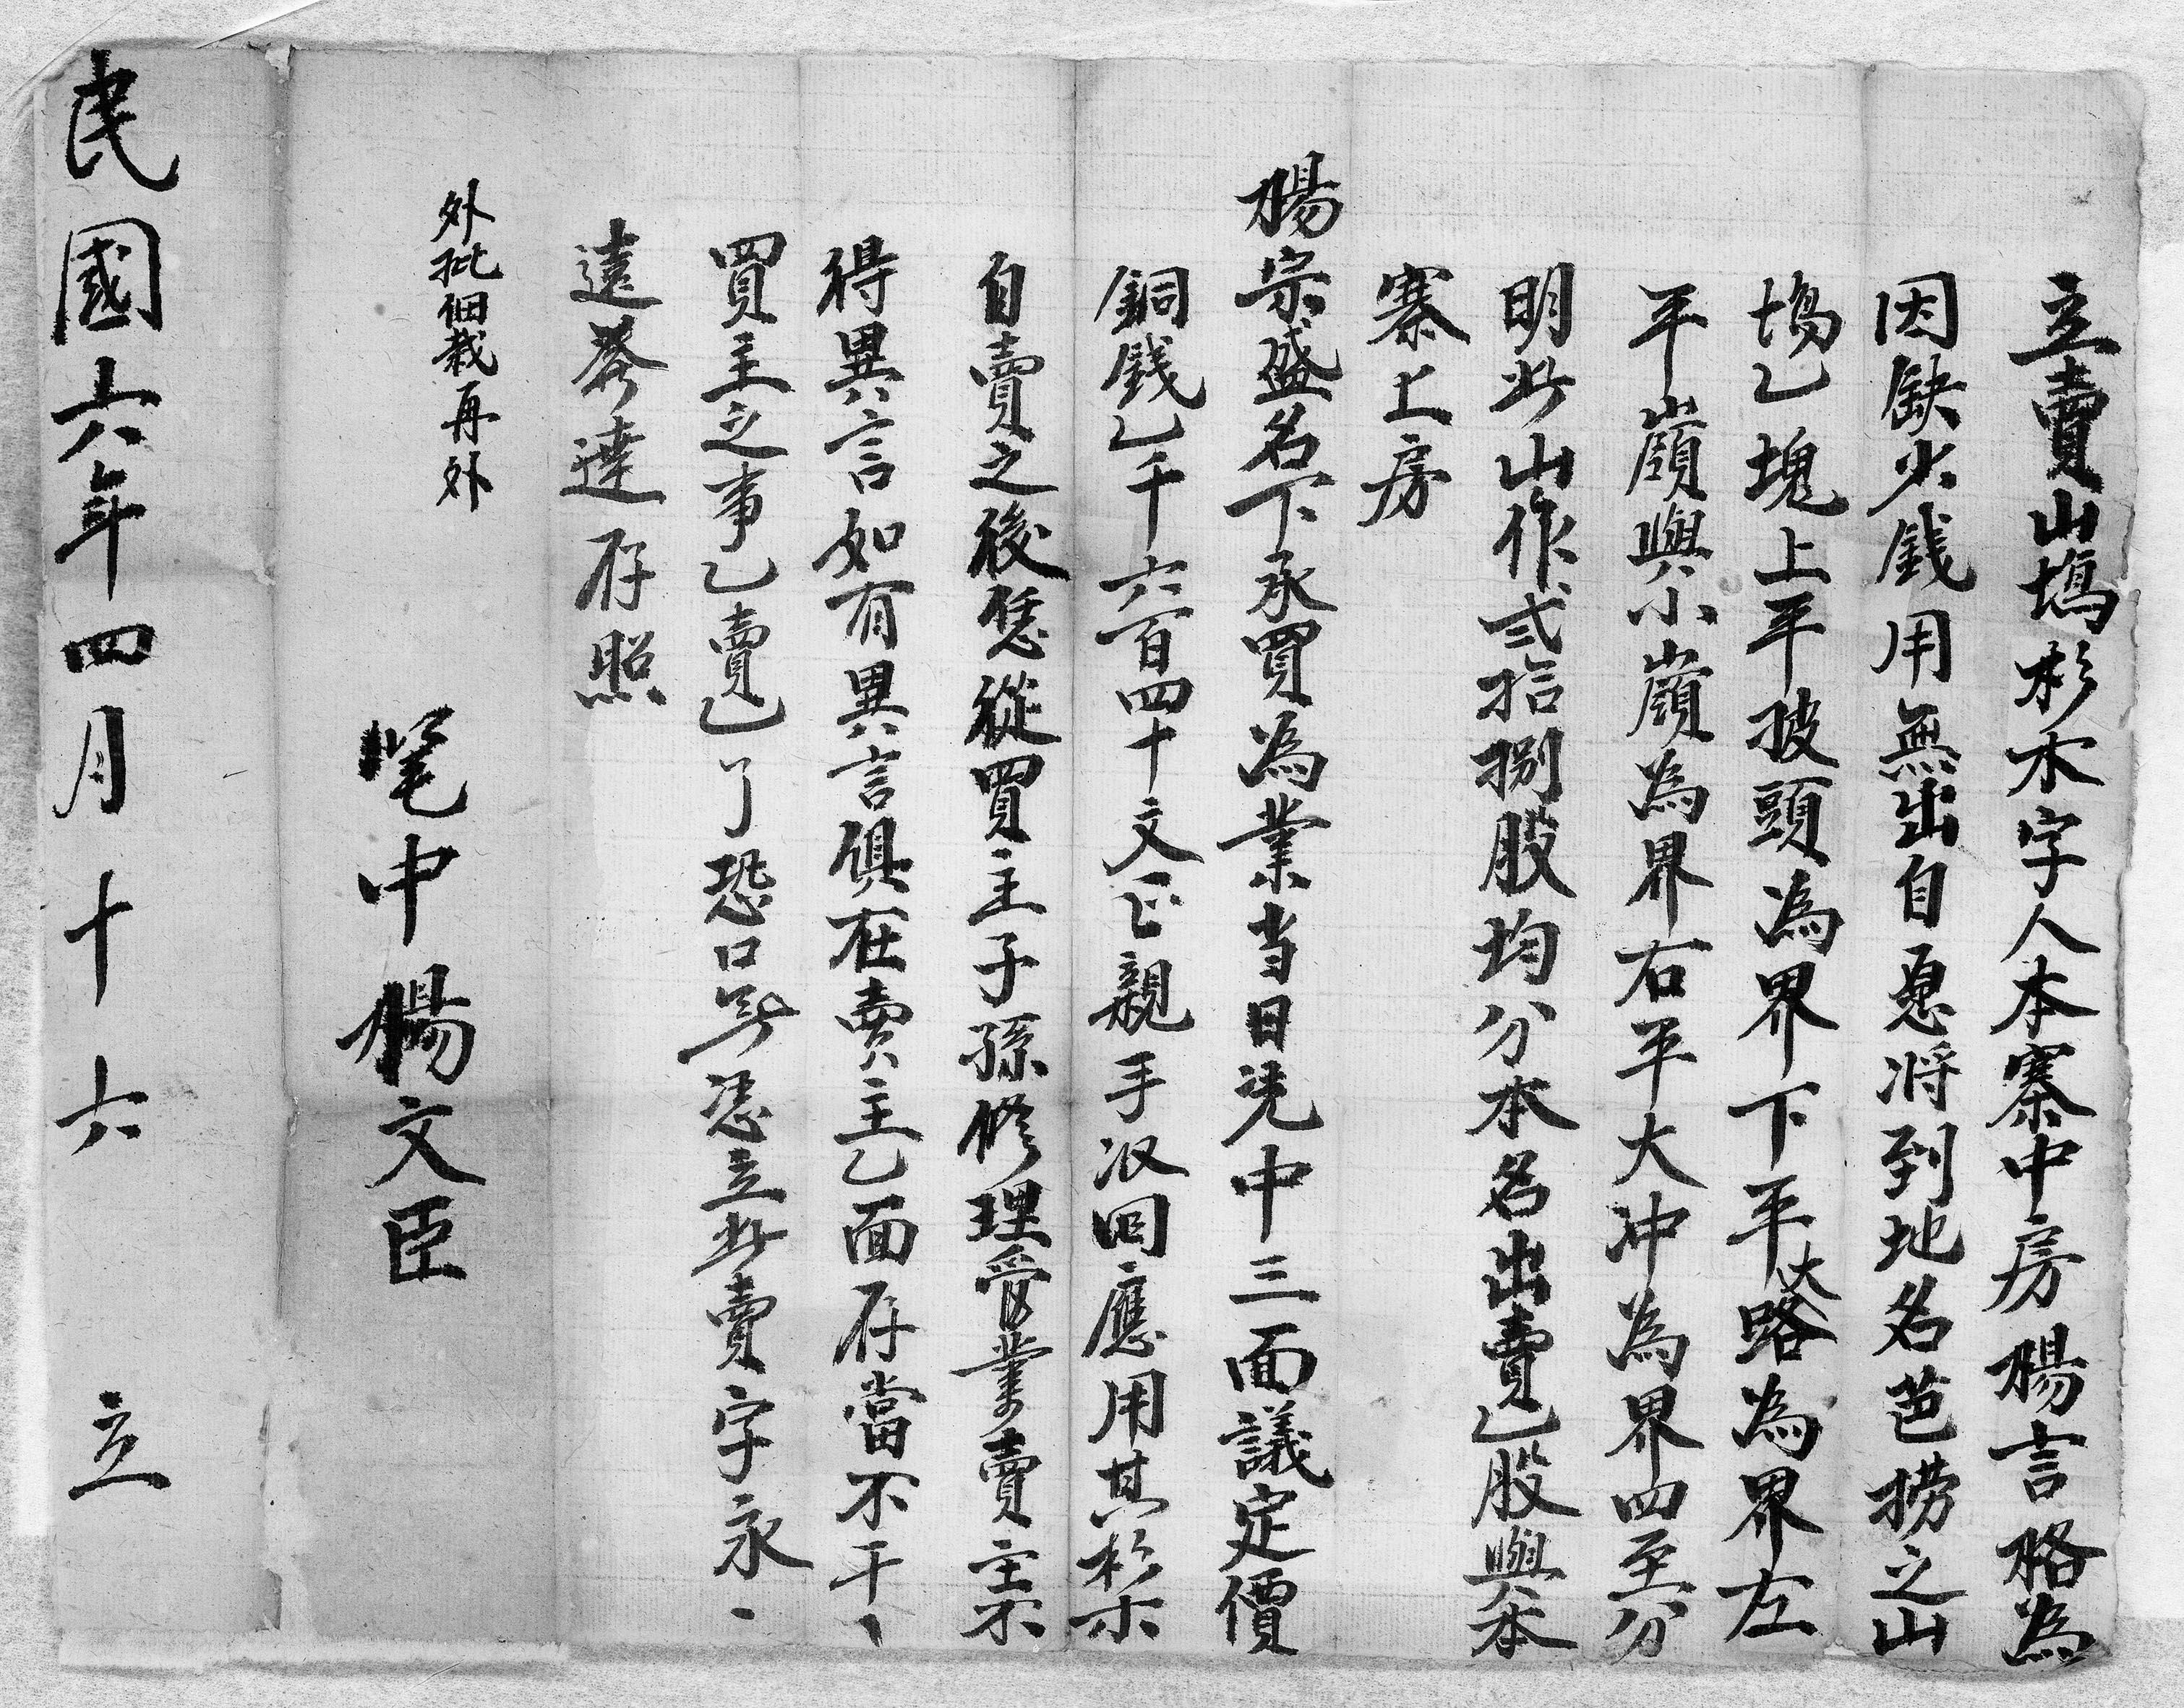 立賣山塲杉木字人本寨中房楊言格為
因缺少錢用無出自愿将到地名芭撈之山
塲乙塊上平坡頭為界下平大路為界左
平嶺與小嶺為界右平大冲為界四至分
明此山作弍拾捌股均分本名出賣乙股與本
寨上房
楊宗盛名下承買為業当日凭中三面議定價
銅錢乙千六百四十文正親手收回應用其杉木
自賣之後恁從買主子孫修理管業賣主不
得異言如有異言俱在賣主乙面存當不干、
買主之事乙賣乙了恐口無憑立此賣字永、
遠發達存照
外批佃栽再外
筆中楊文臣
民國六年四月十六 立